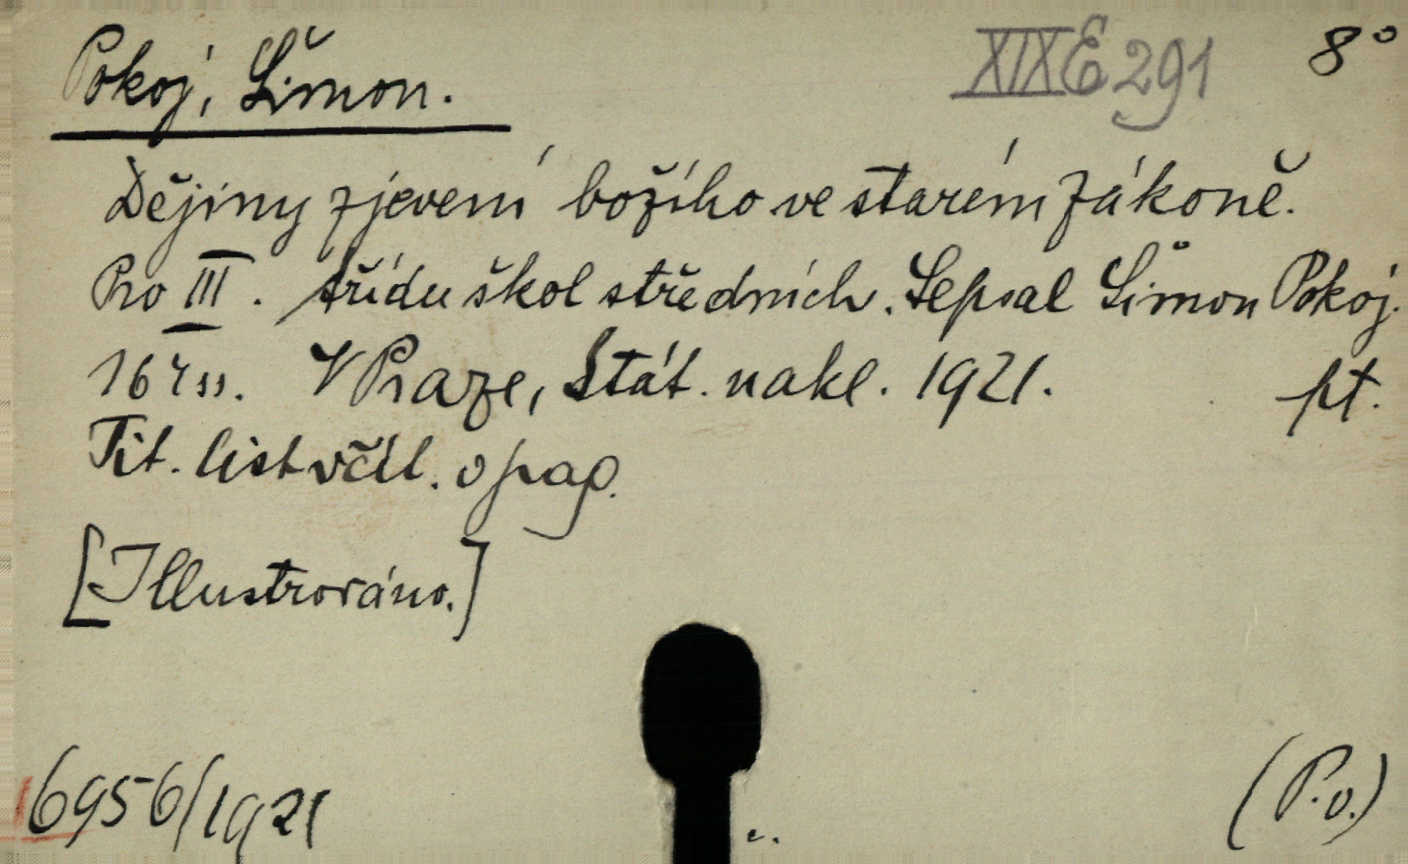 Pokoj, Šimon. XIX E 291 8°
Dějiny zjevení božího ve starém zákoně.
Pro III. třídu škol středních. Sepsal Šimon Pokoj.
164 ss. V Praze, Stát. nakl. 1921. pt.
Tit. list včil. o pag.
[Illustrováno.]
6956/1921 (P.v.)